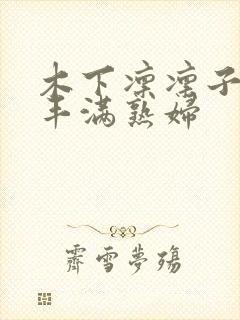 木下凛凛子
丰满熟婦
霽雪夢殤